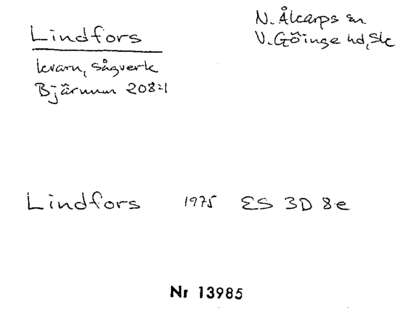 Lindfors
kvarn, sågverk
Bjärnum 208:1
N. Åkarps sn
V. Göinge hd, Sk
Lindfors 1975 ES 3D 8e
Nr 13985